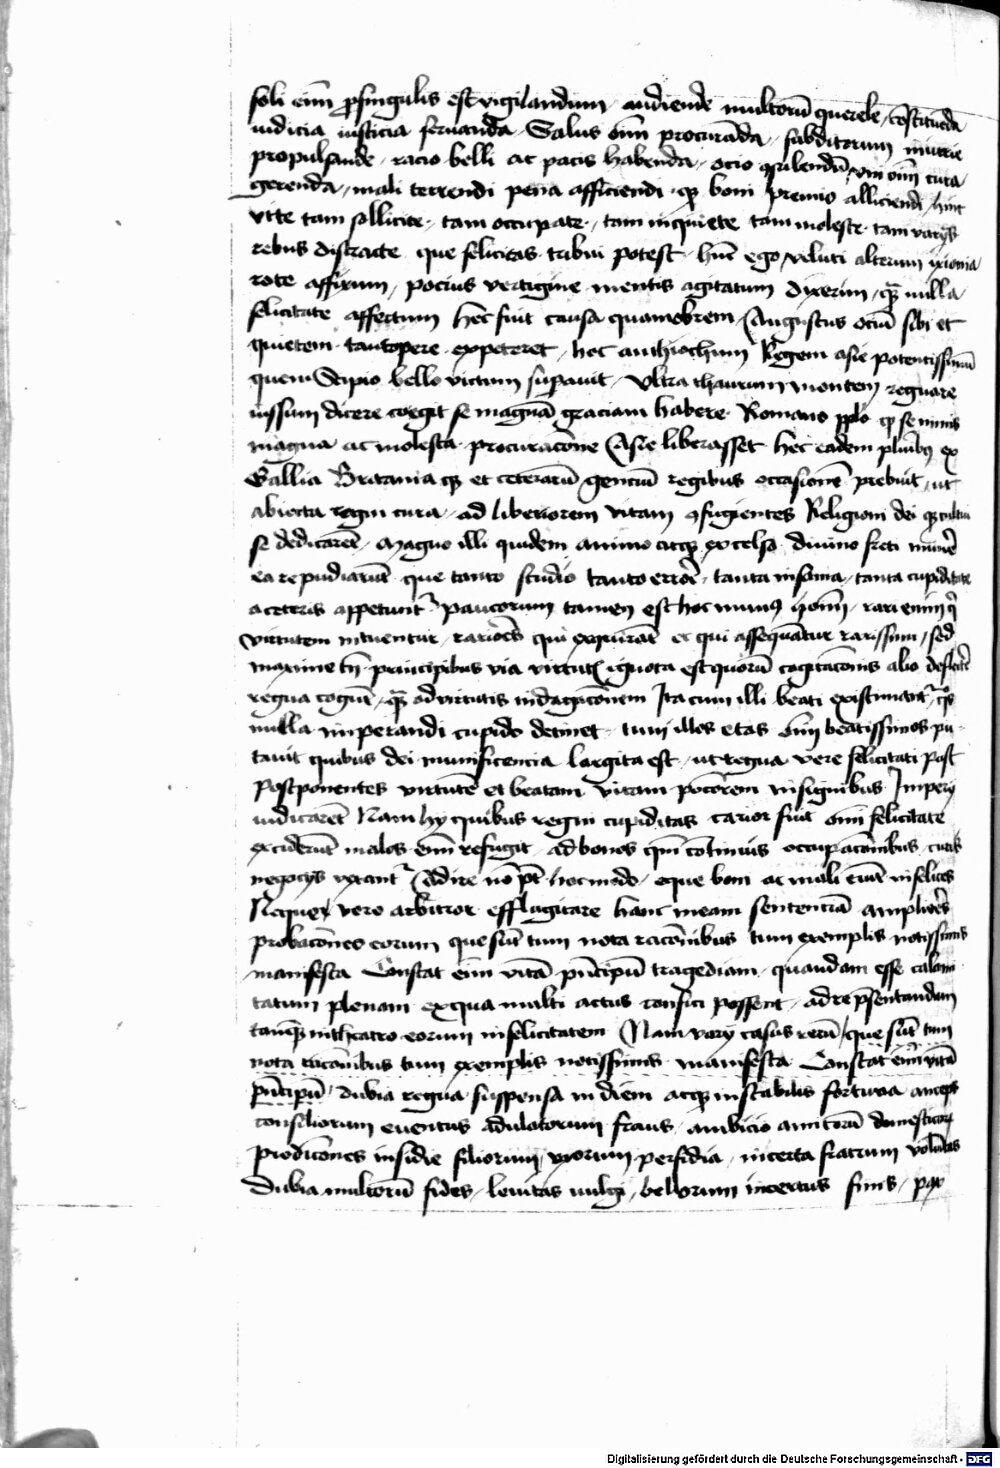 soli enim pro singulis est vigilandum / audiende multorũ querele / cõstituẽda
iudicia iusticia seruanda / Salus oim̃ procurãda / subditorum iniurie
propulsande / racio belli ac pacis habenda / ocio cõsulendũ / viri oim̃ cura
gerenda / mali terrendi pena afficiendi / qʒ boni premio alliciendi / huic
vite tam sollicite / tam occupate / tam inquiete tam moleste / tam varijs
rebus distracte que felicitas tribui potest / hũc ego / veluti alterum ixionia
rote affixum / pocius vertigine mentis agitatum dixerim / qʒ nulla
felicitate affectum Hec fuit causa quamobrem Augustus ociũ sibi et
quietem tantopere expeteret / hec anthiochum Regem asie potentissimũ
quem Scipio bello victum supauit / Vltra thaurum montem regnare
iussum dicere coegit se magnã graciam habere Romano pplo qʒ se nimis
magna ac molesta procuracõne Asie liberasset Hec eadem pluribʒ ex
Gallia Britania qʒ et ceterarũ genciũ regibus occasionẽ prebuit / ut
abiecta regni cura / ad liberiorem vitam cõfugientes Religioni dei qʒ cultui
se dedicarẽt / Magno illi quidem animo atqʒ excelso diuino freti munẽ
ea repudiarũt que tanto studio tanto errorẽ / tanta insania / tanta cupiditate
a ceteris appetunt᷑ paucorum tamen est hoc munus hoim̃ / rari enim qui
virtutem intuentur / rariorẽs qui exquirãt et qui assequãtur rarissimi / sed
maxime tñ principibus via virtutis ignota est quorũ cogitacõnis alio deflectẽ
regna cogũt / qʒ ad virtutis indagacõnem Ita cum illi beati existimant᷑ qos
nulla imperandi cupido detinet / tum illos etas oim̃ beatissimos pu-
tauit quibus dei munificencia largita est / ut regna vere felicitati post
Postponentes virtutẽ et beatam vitam pociorem insignibus Imperij
iudicarẽt Nam hij quibus regni cupiditas carior fuit oim̃ felicitate
exciderũt malos enim̃ refugit / ad bonos qui cõtinuis occupacõnibus / curis
negocijs vexant᷑ Adire nõ põt hoc modo / eque boni ac mali erũt infelices
Neque vero arbitror efflagitare hanc meam sentenciã ampliores
probacõnes eorum que sũt tum nota racõnibus tum exemplis notissimis
manifesta Constat enĩ vitã pñcipũ tragediam / quandam esse calami
tatum plenam ex qua multi actus confici possent / ad represẽntandam
tamqʒ in theatro eorum infelicitatem Nam varij casus rerũ / que sũt tum
nota racõnibus tum exemplis notissimis manifesta Constat enim̃ vitã
pñcipũ / dubia regna suspensa in diem atqʒ instabilis fortuna anceps
consiliorum euentus adulatorum fraus / ambicio amicorũ domesticorũ
prodicõnes insidie filiorum / vxorum perfidia / incerta fratrum volũtas
Dubia multorũ fides / leuitas vulgi / bellorum incertus finis /
Digitalisierung gefördert durch die Deutsche Forschungsgemeinschaft - DFG